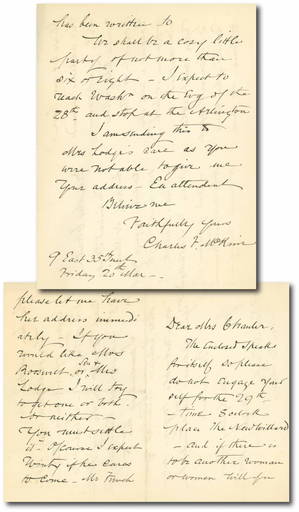 Dear Mrs Chanler,
The Enclosed Speaks
for itself, so please
do not Engage your
self for the 29th.
Time 8 oclock
place The New Willard
- and if there is
to be another woman
or women will you
please let me have
her address immedi
ately. If you
would like Mrs
Roosevelt, or, Mrs
Lodge I will try
to get one or both.
or neither -
You must settle
it. Of course I expect
if she cares
to come - Mr French
has been written to
We shall be a cosy little
party of not more than
six or eight - I expect to
reach Washn on the Evg of the
28th and stop at the Arlington
I am sending this to
Mrs Lodges care as you
were not able to give me
Your address - En attendent
Believe me
Faithfully Yours
Charles F. McKim
9 East 35th
Friday 20th Mar -